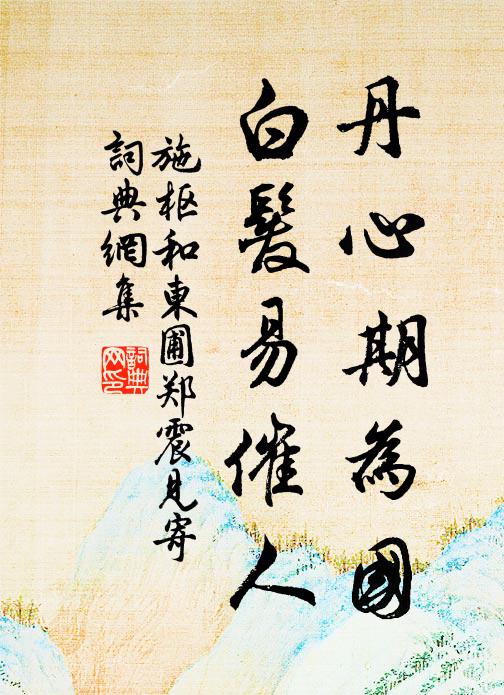 丹心期為國
白髮易催人
施枢和東圃郑震見寄
詞典網集
詞典網印